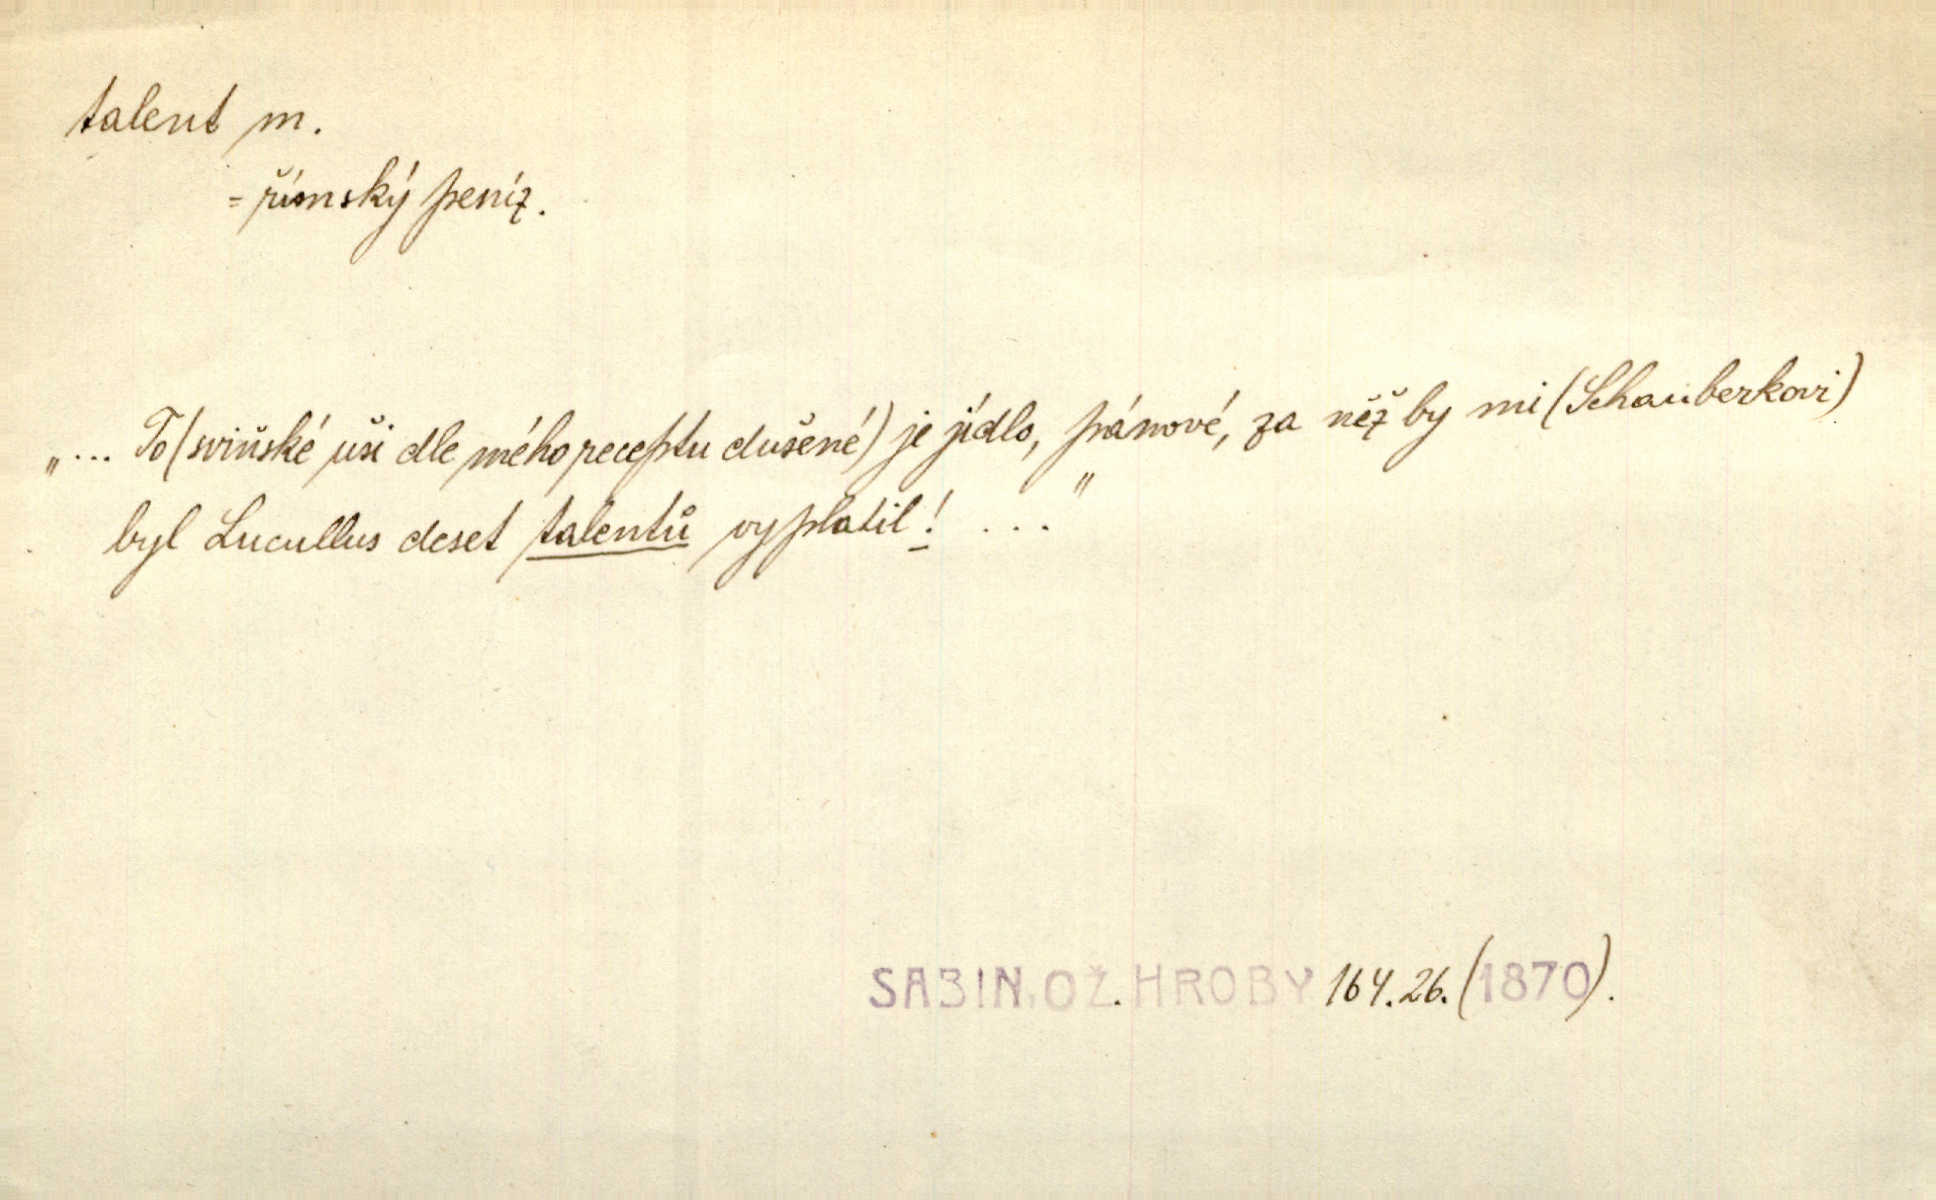 talent m.
= římský peníz.
„... To (sviňské uši dle mého receptu dušené) je jídlo, pánové, za něž by mi (Schauberkovi)
byl Lucullus deset talentů vyplatil! ..."
SABIN. OŽ. HROBY 164.26. (1870).